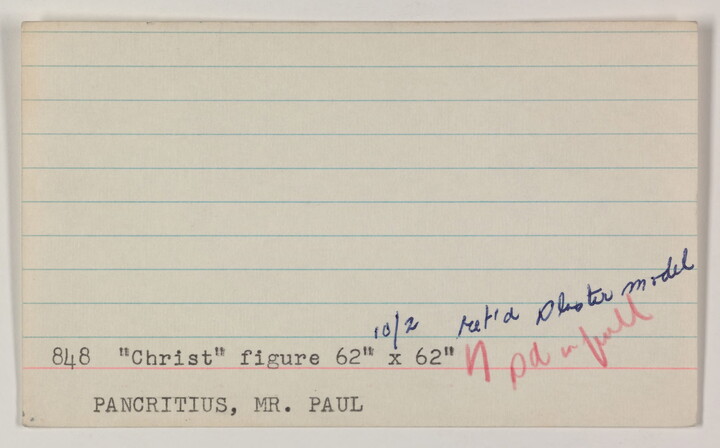 10/2 ret'd Plaster model
848 "Christ" figure 62" x 62"
pd in full
PANCRITIUS, MR. PAUL